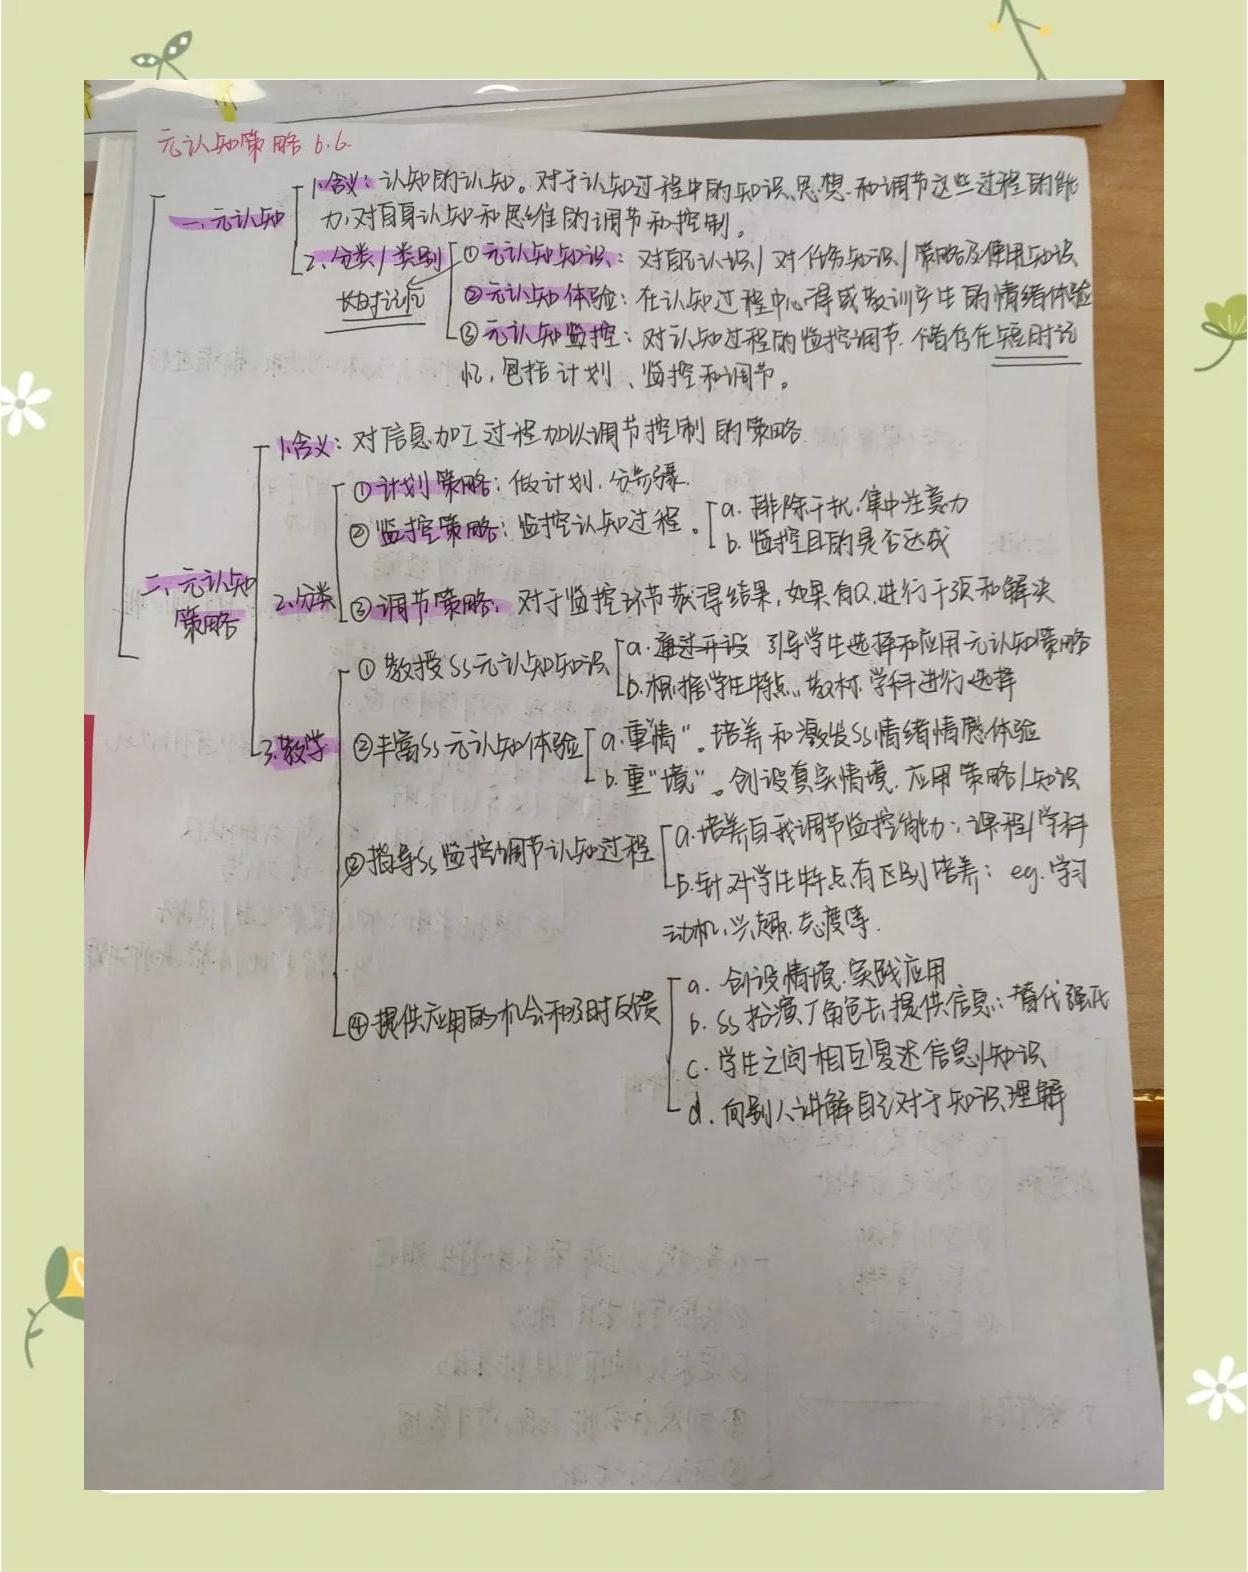 元认知策略 6.6
一、元认知
1.含义：认知的认知。对于认知过程中的知识、思想和调节这些过程的能
力,对自身认知和思维的调节和控制。
2、分类/类别
长时记忆
①元认知知识：对自己认识/对任务知识/策略及使用知识
②元认知体验：在认知过程中心得或教训产生的情绪体验
③元认知监控：对认知过程的监控调节.储存在短时记
忆,包括计划、监控和调节。
二、元认知
策略
1.含义：对信息加工过程加以调节控制的策略
2.分类
①计划策略：做计划.分步骤.
②监控策略：监控认知过程。
a. 排除干扰.集中注意力
b. 监控目的是否达成
③调节策略：对于监控环节获得结果,如果有Q.进行干预和解决
3.教学
①教授Ss元认知知识
a. 通过开设 引导学生选择和应用元认知策略
b.根据学生特点、教材.学科进行选择
②丰富Ss元认知体验
a.重"情"。培养和激发Ss情绪情感体验
b.重"境"。创设真实情境.应用策略/知识
③指导Ss监控调节认知过程
a.培养自我调节监控能力：课程/学科
b.针对学生特点有区别培养：eg.学习
动机、兴趣.态度等.
④提供应用的机会和及时反馈
a. 创设情境.实践应用
b. Ss扮演T角色去提供信息：替代强化
c. 学生之间相互复述信息/知识
d. 向别人讲解自己对于知识理解